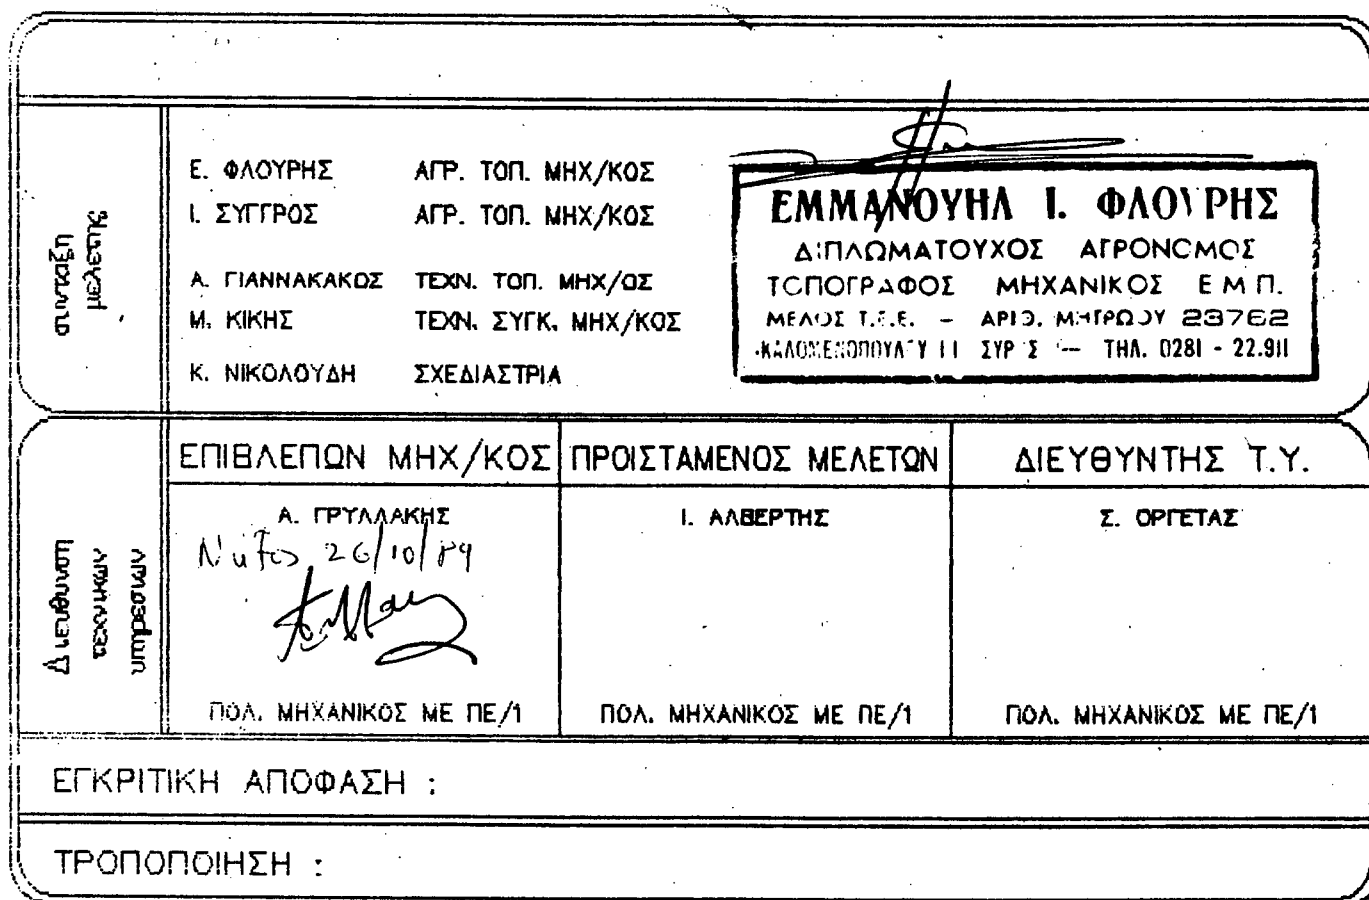 συνταξη
μελετης
Ε. ΦΛΟΥΡΗΣ ΑΓΡ. ΤΟΠ. ΜΗΧ/ΚΟΣ
Ι. ΣΥΓΓΡΟΣ ΑΓΡ. ΤΟΠ. ΜΗΧ/ΚΟΣ
Α. ΓΙΑΝΝΑΚΑΚΟΣ ΤΕΧΝ. ΤΟΠ. ΜΗΧ/ΟΣ
Μ. ΚΙΚΗΣ ΤΕΧΝ. ΣΥΓΚ. ΜΗΧ/ΚΟΣ
Κ. ΝΙΚΟΛΟΥΔΗ ΣΧΕΔΙΑΣΤΡΙΑ
ΕΜΜΑΝΟΥΗΛ Ι. ΦΛΟΥΡΗΣ
ΔΙΠΛΩΜΑΤΟΥΧΟΣ ΑΓΡΟΝΟΜΟΣ
ΤΟΠΟΓΡΑΦΟΣ ΜΗΧΑΝΙΚΟΣ Ε Μ Π.
ΜΕΛΟΣ Τ.Ε.Ε. – ΑΡΙΘ. ΜΗΤΡΩΟΥ 23762
ΤΗΛ. 0281 - 22.911
Διευθυνση
τεχνικων
υπηρεσιων
ΕΠΙΒΛΕΠΩΝ ΜΗΧ/ΚΟΣ ΠΡΟΙΣΤΑΜΕΝΟΣ ΜΕΛΕΤΩΝ ΔΙΕΥΘΥΝΤΗΣ Τ.Υ.
Α. ΓΡΥΛΛΑΚΗΣ Ι. ΑΛΒΕΡΤΗΣ Σ. ΟΡΓΕΤΑΣ
26/10/89
ΠΟΛ. ΜΗΧΑΝΙΚΟΣ ΜΕ ΠΕ/1 ΠΟΛ. ΜΗΧΑΝΙΚΟΣ ΜΕ ΠΕ/1 ΠΟΛ. ΜΗΧΑΝΙΚΟΣ ΜΕ ΠΕ/1
ΕΓΚΡΙΤΙΚΗ ΑΠΟΦΑΣΗ :
ΤΡΟΠΟΠΟΙΗΣΗ :